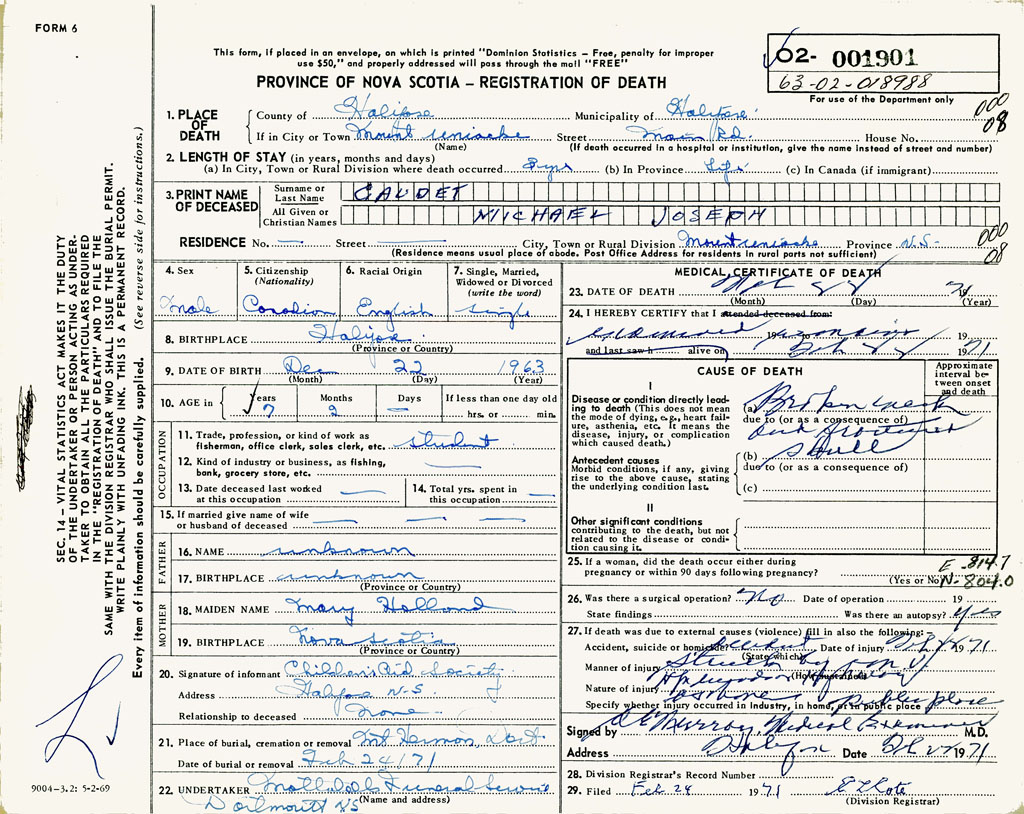 FORM 6
This form, if placed in an envelope, on which is printed "Dominion Statistics – Free, penalty for improper
use $50," and properly addressed will pass through the mail "FREE"
02- 001901
63-02-018988
For use of the Department only
PROVINCE OF NOVA SCOTIA – REGISTRATION OF DEATH
1. PLACE OF DEATH
County of Halifax Municipality of Halifax
000
08
If in City or Town Mount Uniacke Street Main Rd. House No.
(Name) (If death occurred in a hospital or institution, give the name instead of street and number)
2. LENGTH OF STAY (in years, months and days)
(a) In City, Town or Rural Division where death occurred yrs (b) In Province Life (c) In Canada (if immigrant)
3. PRINT NAME OF DECEASED
Surname or Last Name GAUDET
All Given or Christian Names MICHAEL JOSEPH
RESIDENCE No. — Street — City, Town or Rural Division Mount Uniacke Province N.S.
000
08
(Residence means usual place of abode. Post Office Address for residents in rural parts not sufficient)
4. Sex
Male
5. Citizenship
(Nationality)
Canadian
6. Racial Origin
English
7. Single, Married,
Widowed or Divorced
(write the word)
Single
8. BIRTHPLACE Halifax
(Province or Country)
9. DATE OF BIRTH Dec 22 1963
(Month) (Day) (Year)
10. AGE in
Years
7
Months
2
Days
—
If less than one day old
hrs. or min.
OCCUPATION
11. Trade, profession, or kind of work as
fisherman, office clerk, sales clerk, etc. Student
12. Kind of industry or business, as fishing,
bank, grocery store, etc. —
13. Date deceased last worked
at this occupation —
14. Total yrs. spent in
this occupation —
15. If married give name of wife
or husband of deceased — — —
FATHER
16. NAME unknown
17. BIRTHPLACE unknown
(Province or Country)
MOTHER
18. MAIDEN NAME Mary Holland
19. BIRTHPLACE Nova Scotia
(Province or Country)
20. Signature of informant Childrens Aid Society
Address Halifax N.S.
Relationship to deceased None
21. Place of burial, cremation or removal Mt Hermon, Dart.
Date of burial or removal Feb 24/71
22. UNDERTAKER Mattatalls Funeral Service
(Name and address)
Dartmouth NS
MEDICAL CERTIFICATE OF DEATH
23. DATE OF DEATH Feb 71
(Month) (Day) (Year)
24. I HEREBY CERTIFY that I attended deceased from:
examined 19
and last saw h alive on Feb 1971
CAUSE OF DEATH
Approximate
interval be-
tween onset
and death
I
Disease or condition directly lead-
ing to death (This does not mean
the mode of dying, e.g., heart fail-
ure, asthenia, etc. It means the
disease, injury, or complication
which caused death.)
(a) Broken neck
due to (or as a consequence of)
and fractured
(b) Skull
due to (or as a consequence of)
(c)
Antecedent causes
Morbid conditions, if any, giving
rise to the above cause, stating
the underlying condition last.
II
Other significant conditions
contributing to the death, but not
related to the disease or condi-
tion causing it.
25. If a woman, did the death occur either during
pregnancy or within 90 days following pregnancy?
(Yes or No)
E-814.7
N-804.0
26. Was there a surgical operation? No Date of operation 19
State findings Was there an autopsy? Yes
27. If death was due to external causes (violence) fill in also the following:
Accident, suicide or homicide? accident Date of injury Feb 1971
(State which)
Manner of injury Struck by M.V.
(How sustained)
Nature of injury
Specify whether injury occurred in industry, in home, or in public place public place
Signed by Murray Medical Examiner M.D.
Address Halifax Date Feb 1971
28. Division Registrar's Record Number
29. Filed Feb 24 1971
(Division Registrar)
SEC. 14 – VITAL STATISTICS ACT MAKES IT THE DUTY
OF THE UNDERTAKER OR PERSON ACTING AS UNDER-
TAKER TO OBTAIN ALL THE PARTICULARS REQUIRED
IN THE "REGISTRATION OF DEATH" AND TO FILE THE
SAME WITH THE DIVISION REGISTRAR WHO SHALL ISSUE THE BURIAL PERMIT.
WRITE PLAINLY WITH UNFADING INK. THIS IS A PERMANENT RECORD.
Every item of information should be carefully supplied. (See reverse side for instructions.)
9004-3.2: 5-2-69